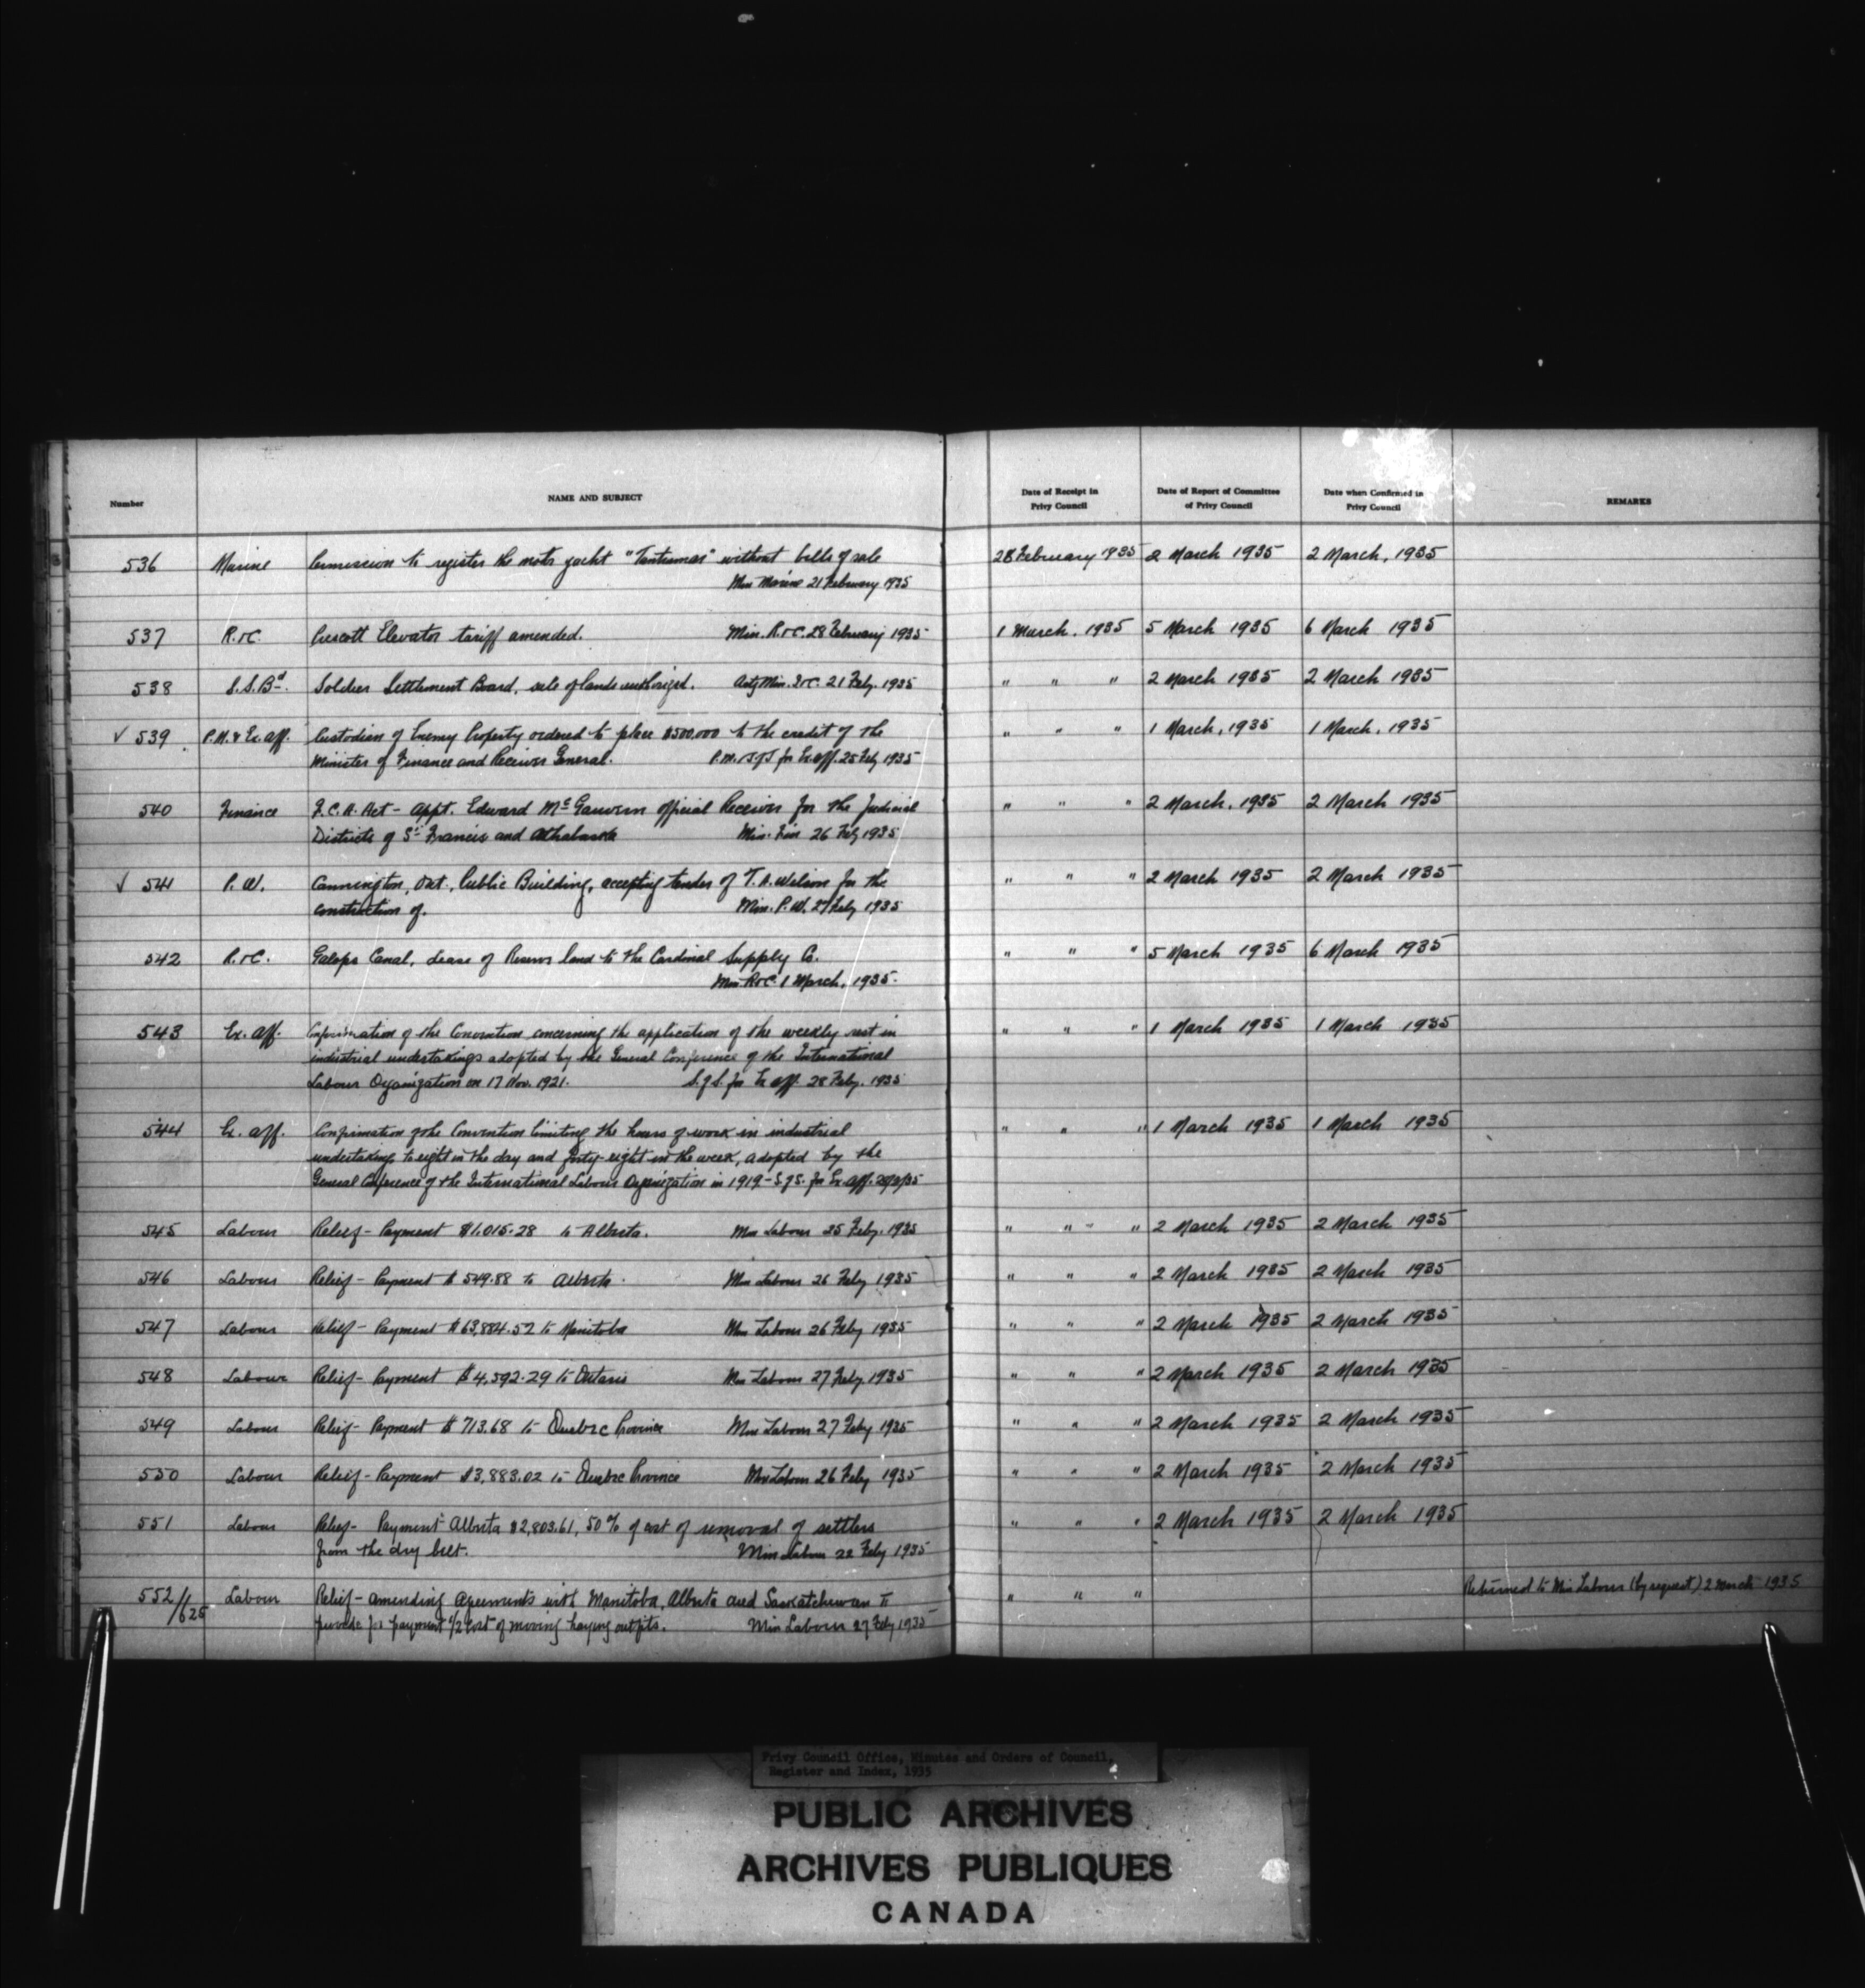 Number
NAME AND SUBJECT
Date of Receipt in Privy Council
Date of Report of Committee of Privy Council
Date when Confirmed in Privy Council
REMARKS
536 Marine Permission to register the motor yacht "Tantramar" without bills of sale 28 February 1935 2 March 1935 2 March, 1935
Min Marine 21 February 1935
537 R. & C. Prescott Elevator tariff amended. Min. R. & C. 28 February 1935 1 March. 1935 5 March 1935 6 March 1935
538 S.S. Bd. Soldier Settlement Board, sale of lands authorized. Actg Min. I & C. 21 Feby. 1935 " " " 2 March 1935 2 March 1935
√ 539 P.M. & Ex. Aff. Custodian of Enemy Property ordered to place $500,000 to the credit of the " " " 1 March, 1935 1 March, 1935
Minister of Finance and Receiver General. P.M. / S of S for Ex. Aff. 25 Feby 1935
540 Finance F.C.A. Act - Appt. Edward official Receiver for the Judicial " " " 2 March, 1935 2 March 1935
Districts of St Francis and Min. Fin 26 Feby 1935
√ 541 P. W. Cannington, Ont., Public Building, accepting tender of T. A. Wilson for the " " " 2 March 1935 2 March 1935
construction of. Min. P. W. 27 Feby 1935
542 R. & C. Galops Canal, Lease of Reserve land to the Cardinal Supply Co. " " " 5 March 1935 6 March 1935
Min. R & C 1 March, 1935.
543 Ex. Aff. Confirmation of the Convention concerning the application of the weekly rest in " " " 1 March 1935 1 March 1935
industrial undertakings adopted by the General Conference of the International
Labour Organization on 17 Nov. 1921. S. of S. for Ex Aff. 28 Feby. 1935
544 Ex. Aff. Confirmation of the Convention limiting the hours of work in industrial " " " 1 March 1935 1 March 1935
undertakings to eight in the day and forty-eight in the week, adopted by the
General Conference of the International Labour Organization in 1919 - S. of S. for Ex. Aff. 28/2/35
545 Labour Relief - Payment $1,015.28 to Alberta. Min Labour 25 Feby. 1935 " " " 2 March 1935 2 March 1935
546 Labour Relief - Payment $549.88 to Alberta. Min Labour 26 Feby 1935 " " " 2 March 1935 2 March 1935
547 Labour Relief - Payment $63,884.52 to Manitoba Min Labour 26 Feby 1935 " " " 2 March 1935 2 March 1935
548 Labour Relief - Payment $4,592.29 to Ontario Min Labour 27 Feby 1935 " " " 2 March 1935 2 March 1935
549 Labour Relief - Payment $713.68 to Quebec Province Min Labour 27 Feby 1935 " " " 2 March 1935 2 March 1935
550 Labour Relief - Payment $3,883.02 to Quebec Province Min Labour 26 Feby 1935 " " " 2 March 1935 2 March 1935
551 Labour Relief - Payment Alberta $2,803.61, 50% of cost of removal of settlers " " " 2 March 1935 2 March 1935
from the dry belt. Min Labour 22 Feby 1935
552/625 Labour Relief - amending agreements with Manitoba, Alberta and Saskatchewan to " " " Returned to Min Labour (by request) 2 March 1935
provide for payment 1/2 cost of moving haying outfits. Min Labour 27 Feby 1935
Privy Council Office, Minutes and Orders of Council,
Register and Index, 1935
PUBLIC ARCHIVES
ARCHIVES PUBLIQUES
CANADA